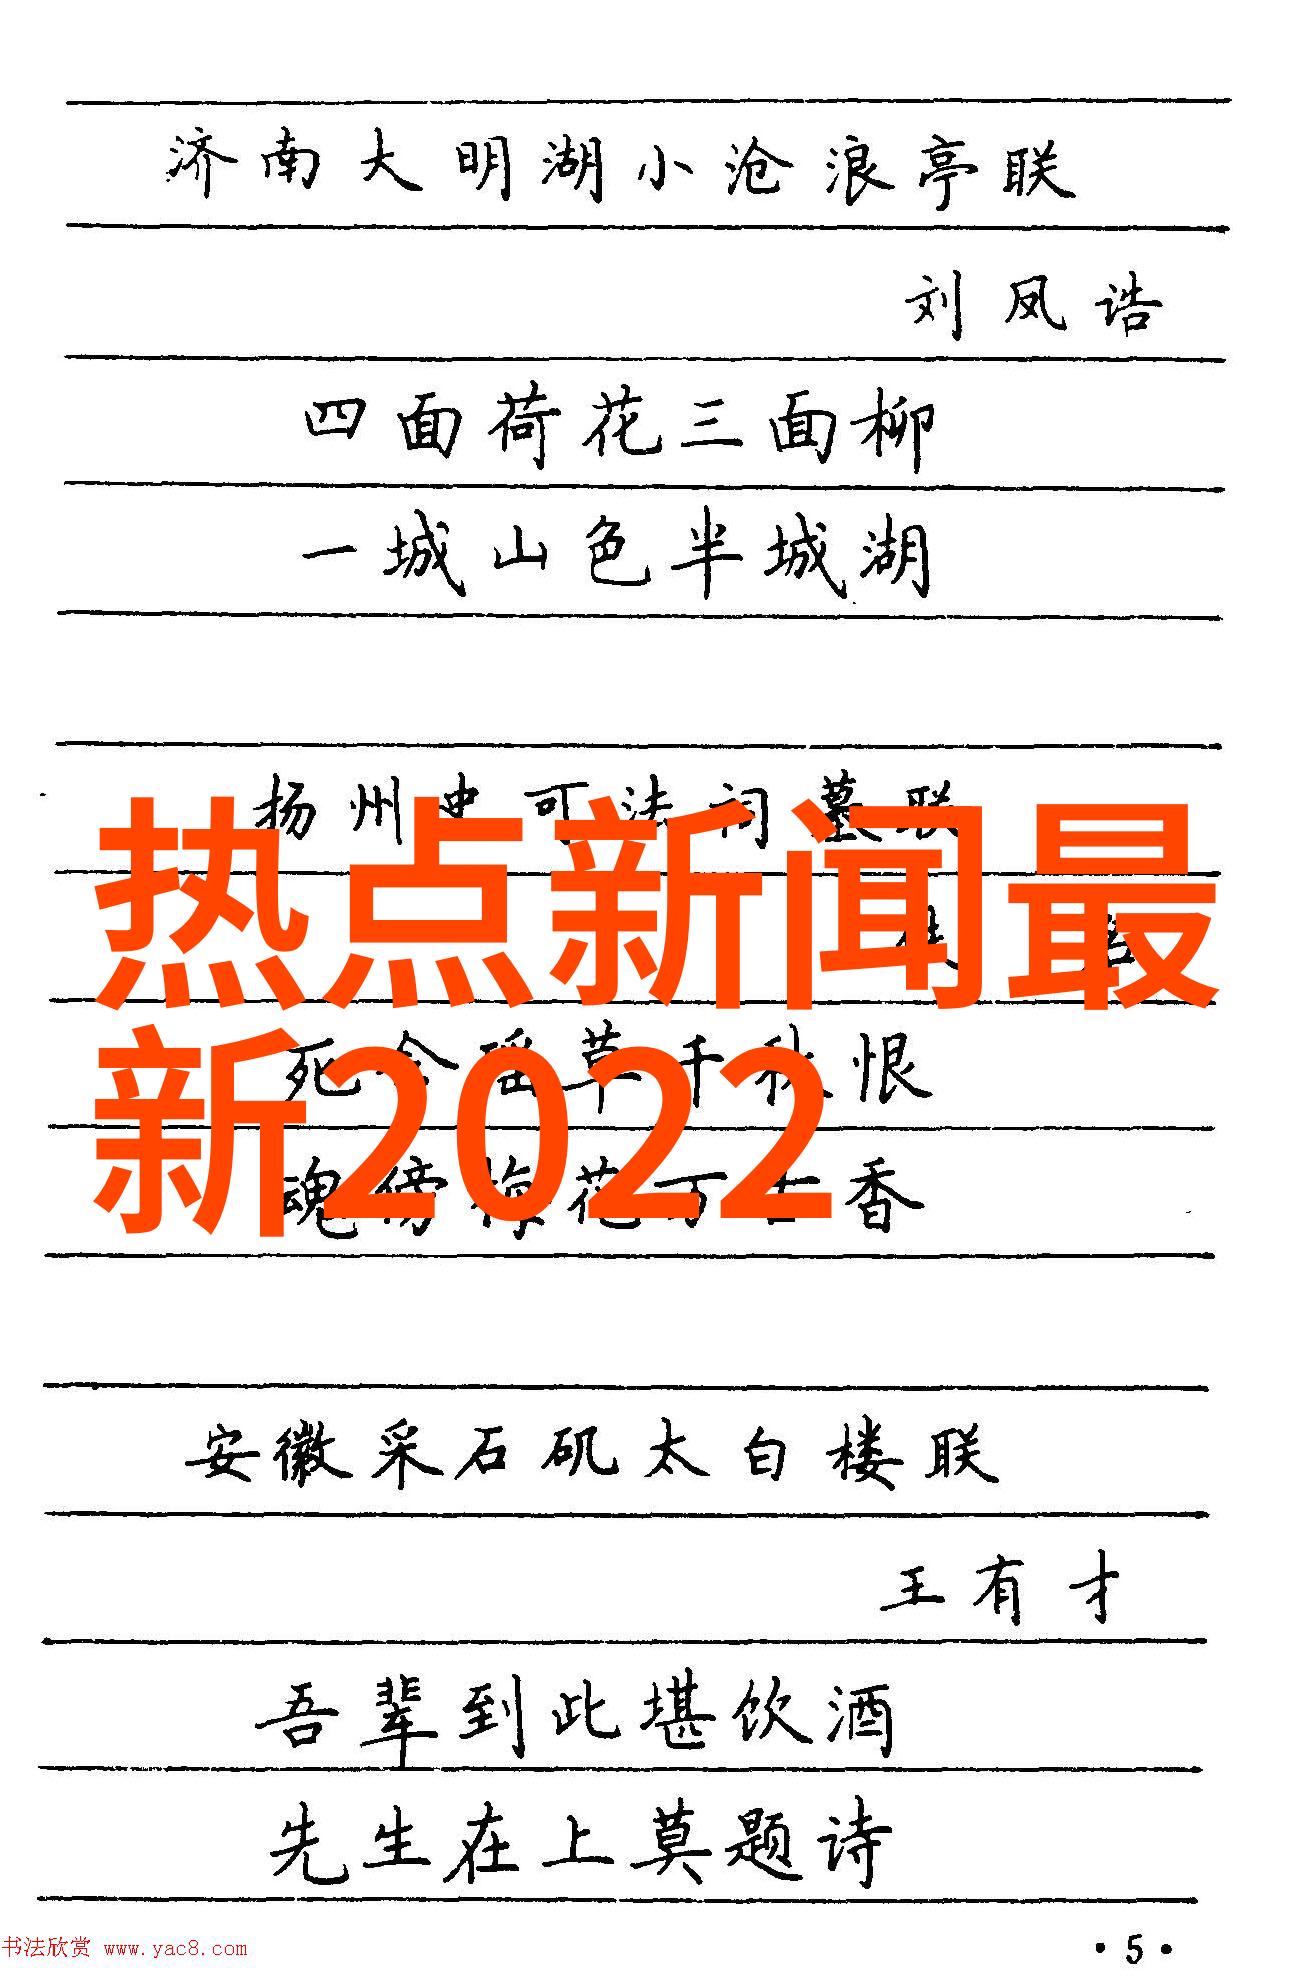 济南大明湖小沧浪亭联
刘凤诰
四面荷花三面柳
一城山色半城湖
扬州史可法祠墓联
热点新闻最
新2022
死今瑶草千秋恨
魂傍梅花万古香
安徽采石矶太白楼联
王有才
吾辈到此堪饮酒
先生在上莫题诗
书法欣赏 www.yac8.com
·5·